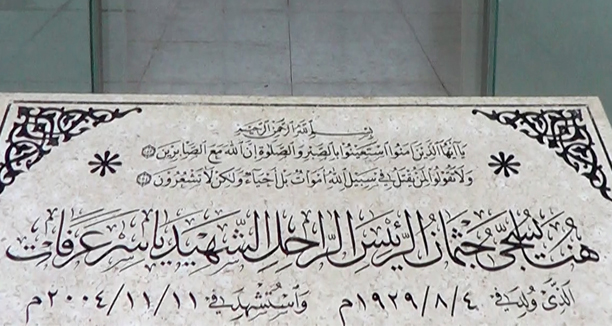 بسم الله الرحمن الرحيم
يا أيها الذين آمنوا استعينوا بالصبر والصلوة إن الله مع الصابرين
ولا تقولوا لمن يقتل في سبيل الله أموات بل أحياء ولكن لا تشعرون
هنا يسجى جثمان الرئيس الراحل الشهيد ياسر عرفات
الذي ولد في: ١٩٢٩/٨/٤م واستشهد في: ٢٠٠٤/١١/١١م